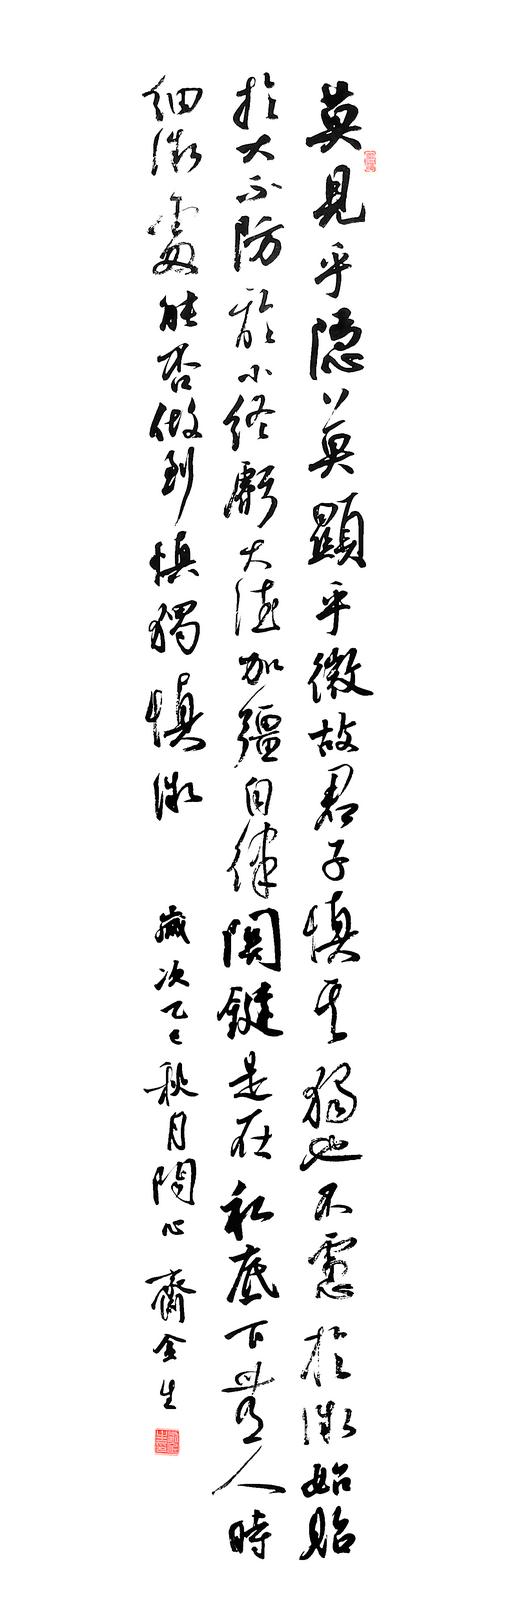 莫見乎隱莫顯乎微故君子慎其獨也不慮於微始貽
於大不防於小終虧大德加强自律關鍵是在私底下無人時
細微處能否做到慎獨慎微
歲次乙巳秋月閑心齋金生